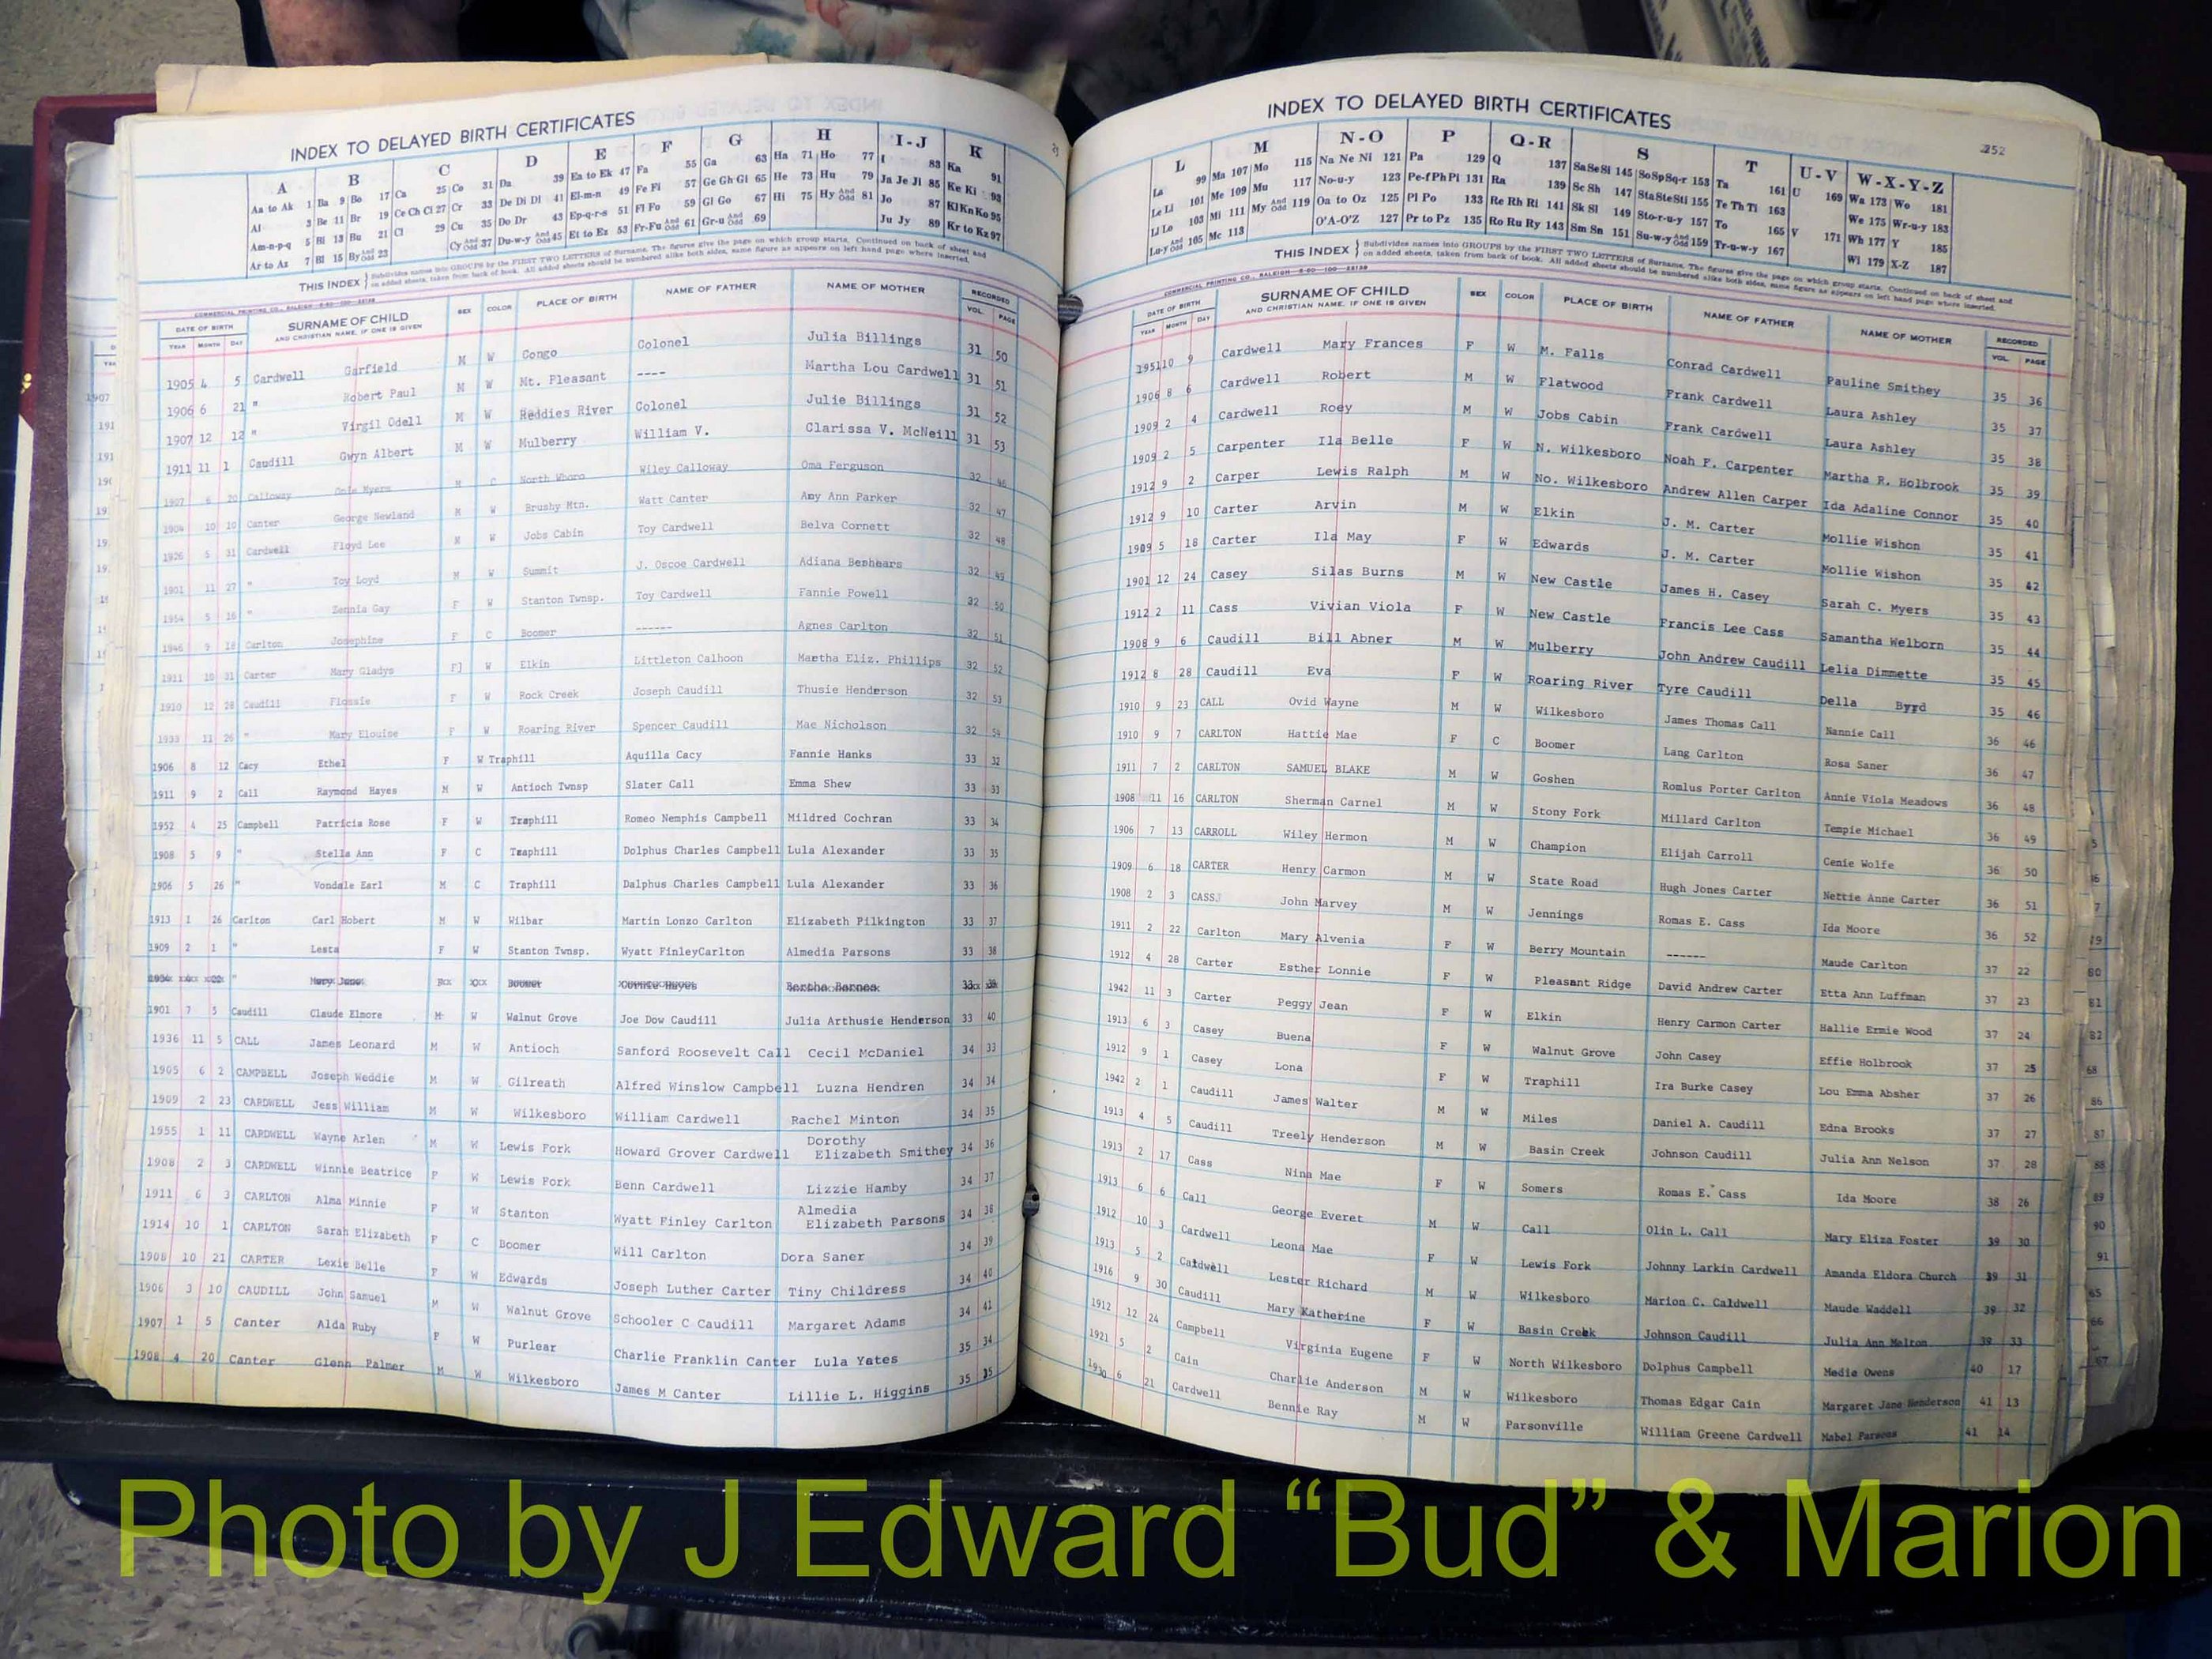 INDEX TO DELAYED BIRTH CERTIFICATES
A B C D E F G H I-J K
Aa to Ak 1 Ba 9 Bo 17 Ca 25 Co 31 Da 39 Ea to Ek 47 Fa 55 Ga 63 Ha 71 Ho 77 I 83 Ka 91
Al 3 Be 11 Br 19 Ce Ch Ci 27 Cr 33 De Di Dl 41 El-m-n 49 Fe Fi 57 Ge Gh Gi 65 He 73 Hu 79 Ja Je Ji 85 Ke Ki 93
Am-n-p-q 5 Bi 13 Bu 21 Cl 29 Cu 35 Do Dr 43 Ep-q-r-s 51 Fl Fo 59 Gl Go 67 Hi 75 Hy And Odd 81 Jo 87 Kl Kn Ko 95
Ar to Az 7 Bl 15 By And Odd 23 Cy And Odd 37 Du-w-y And Odd 45 Et to Ez 53 Fr-Fu And Odd 61 Gr-u And Odd 69 Ju Jy 89 Kr to Kz 97
THIS INDEX } Subdivides names into GROUPS by the FIRST TWO LETTERS of Surname. The figures give the page on which group starts. Continued on back of sheet and
on added sheets, taken from back of book. All added sheets should be numbered alike both sides, same figure as appears on left hand page where inserted.
DATE OF BIRTH SURNAME OF CHILD SEX COLOR PLACE OF BIRTH NAME OF FATHER NAME OF MOTHER RECORDED
YEAR MONTH DAY AND CHRISTIAN NAME, IF ONE IS GIVEN VOL. PAGE
1905 4 5 Cardwell Garfield M W Congo Colonel Julia Billings 31 50
1906 6 21 " Robert Paul M W Mt. Pleasant ---- Martha Lou Cardwell 31 51
1907 12 12 " Virgil Odell M W Reddies River Colonel Julie Billings 31 52
1911 11 1 Caudill Gwyn Albert M W Mulberry William V. Clarissa V. McNeill 31 53
1907 6 20 Calloway Onie Myers M C North Wboro Wiley Calloway Oma Ferguson 32 46
1904 10 10 Canter George Newland M W Brushy Mtn. Watt Canter Amy Ann Parker 32 47
1926 5 31 Cardwell Floyd Lee M W Jobs Cabin Toy Cardwell Belva Cornett 32 48
1901 11 27 " Toy Loyd M W Summit J. Oscoe Cardwell Adiana Beshears 32 49
1954 5 18 " Zennia Gay F W Stanton Twnsp. Toy Cardwell Fannie Powell 32 50
1946 9 18 Carlton Josephine F C Boomer ------ Agnes Carlton 32 51
1911 10 31 Carter Mary Gladys F W Elkin Littleton Calhoon Martha Eliz. Phillips 32 52
1910 12 28 Caudill Flossie F W Rock Creek Joseph Caudill Thusie Henderson 32 53
1933 11 26 " Mary Elouise F W Roaring River Spencer Caudill Mae Nicholson 32 54
1906 8 12 Cacy Ethel F W Traphill Aquilla Cacy Fannie Hanks 33 32
1911 9 2 Call Raymond Hayes M W Antioch Twnsp Slater Call Emma Shew 33 33
1952 4 25 Campbell Patricia Rose F W Traphill Romeo Nemphis Campbell Mildred Cochran 33 34
1908 5 9 " Stella Ann F C Traphill Dolphus Charles Campbell Lula Alexander 33 35
1906 5 26 " Vondale Earl M C Traphill Dalphus Charles Campbell Lula Alexander 33 36
1913 1 26 Carlton Carl Hobert M W Wilbar Martin Lonzo Carlton Elizabeth Pilkington 33 37
1909 2 1 " Lesta F W Stanton Twnsp. Wyatt FinleyCarlton Almedia Parsons 33 38
" Boomer Bertha Barnes 33 39
1901 7 5 Caudill Claude Elmore M W Walnut Grove Joe Dow Caudill Julia Arthusie Henderson 33 40
1936 11 5 CALL James Leonard M W Antioch Sanford Roosevelt Call Cecil McDaniel 34 33
1905 6 2 CAMPBELL Joseph Weddie M W Gilreath Alfred Winslow Campbell Luzna Hendren 34 34
1909 2 23 CARDWELL Jess William M W Wilkesboro William Cardwell Rachel Minton 34 35
1955 1 11 CARDWELL Wayne Arlen M W Lewis Fork Howard Grover Cardwell Dorothy Elizabeth Smithey 34 36
1908 2 3 CARDWELL Winnie Beatrice F W Lewis Fork Benn Cardwell Lizzie Hamby 34 37
1911 6 3 CARLTON Alma Minnie F W Stanton Wyatt Finley Carlton Almedia Elizabeth Parsons 34 38
1914 10 1 CARLTON Sarah Elizabeth F C Boomer Will Carlton Dora Saner 34 39
1908 10 21 CARTER Lexie Belle F W Edwards Joseph Luther Carter Tiny Childress 34 40
1906 3 10 CAUDILL John Samuel M W Walnut Grove Schooler C Caudill Margaret Adams 34 41
1907 1 5 Canter Alda Ruby F W Purlear Charlie Franklin Canter Lula Yates 35 34
1908 4 20 Canter Glenn Palmer M W Wilkesboro James M Canter Lillie L. Higgins 35 35
INDEX TO DELAYED BIRTH CERTIFICATES
252
L M N-O P Q-R S T U-V W-X-Y-Z
La 99 Ma 107 Mo 115 Na Ne Ni 121 Pa 129 Q 137 Sa Se Si 145 So Sp Sq-r 153 Ta 161 U 169 Wa 173 Wo 181
Le Li 101 Me 109 Mu 117 No-u-y 123 Pe-f Ph Pi 131 Ra 139 Sc Sh 147 Sta Ste Sti 155 Te Th Ti 163 We 175 Wr-u-y 183
Ll Lo 103 Mi 111 My And Odd 119 Oa to Oz 125 Pl Po 133 Re Rh Ri 141 Sk Sl 149 Sto-r-u-y 157 To 165 V 171 Wh 177 Y 185
Lu-y And Odd 105 Mc 113 O'A-O'Z 127 Pr to Pz 135 Ro Ru Ry 143 Sm Sn 151 Su-w-y And Odd 159 Tr-u-w-y 167 Wi 179 X-Z 187
THIS INDEX } Subdivides names into GROUPS by the FIRST TWO LETTERS of Surname. The figures give the page on which group starts. Continued on back of sheet and
on added sheets, taken from back of book. All added sheets should be numbered alike both sides, same figure as appears on left hand page where inserted.
DATE OF BIRTH SURNAME OF CHILD SEX COLOR PLACE OF BIRTH NAME OF FATHER NAME OF MOTHER RECORDED
YEAR MONTH DAY AND CHRISTIAN NAME, IF ONE IS GIVEN VOL. PAGE
1951 10 9 Cardwell Mary Frances F W M. Falls Conrad Cardwell Pauline Smithey 35 36
1906 8 6 Cardwell Robert M W Flatwood Frank Cardwell Laura Ashley 35 37
1909 2 4 Cardwell Roey M W Jobs Cabin Frank Cardwell Laura Ashley 35 38
1909 2 5 Carpenter Ila Belle F W N. Wilkesboro Noah F. Carpenter Martha R. Holbrook 35 39
1912 9 2 Carper Lewis Ralph M W No. Wilkesboro Andrew Allen Carper Ida Adaline Connor 35 40
1912 9 10 Carter Arvin M W Elkin J. M. Carter Mollie Wishon 35 41
1909 5 18 Carter Ila May F W Edwards J. M. Carter Mollie Wishon 35 42
1901 12 24 Casey Silas Burns M W New Castle James H. Casey Sarah C. Myers 35 43
1912 2 11 Cass Vivian Viola F W New Castle Francis Lee Cass Samantha Welborn 35 44
1908 9 6 Caudill Bill Abner M W Mulberry John Andrew Caudill Lelia Dimmette 35 45
1912 8 28 Caudill Eva F W Roaring River Tyre Caudill Della Byrd 35 46
1910 9 23 CALL Ovid Wayne M W Wilkesboro James Thomas Call Nannie Call 36 46
1910 9 7 CARLTON Hattie Mae F C Boomer Lang Carlton Rosa Saner 36 47
1911 7 2 CARLTON SAMUEL BLAKE M W Goshen Romlus Porter Carlton Annie Viola Meadows 36 48
1908 11 16 CARLTON Sherman Carnel M W Stony Fork Millard Carlton Tempie Michael 36 49
1906 7 13 CARROLL Wiley Hermon M W Champion Elijah Carroll Cenie Wolfe 36 50
1909 6 18 CARTER Henry Carmon M W State Road Hugh Jones Carter Nettie Anne Carter 36 51
1908 2 3 CASS John Harvey M W Jennings Romas E. Cass Ida Moore 36 52
1911 2 22 Carlton Mary Alvenia F W Berry Mountain ------ Maude Carlton 37 22
1912 4 28 Carter Esther Lonnie F W Pleasant Ridge David Andrew Carter Etta Ann Luffman 37 23
1942 11 3 Carter Peggy Jean F W Elkin Henry Carmon Carter Hallie Ermie Wood 37 24
1913 6 3 Casey Buena F W Walnut Grove John Casey Effie Holbrook 37 25
1912 9 1 Casey Lona F W Traphill Ira Burke Casey Lou Emma Absher 37 26
1942 2 1 Caudill James Walter M W Miles Daniel A. Caudill Edna Brooks 37 27
1913 4 5 Caudill Treely Henderson M W Basin Creek Johnson Caudill Julia Ann Nelson 37 28
1913 2 17 Cass Nina Mae F W Somers Romas E. Cass Ida Moore 38 26
1913 6 6 Call George Everet M W Call Olin L. Call Mary Eliza Foster 39 30
1912 10 3 Cardwell Leona Mae F W Lewis Fork Johnny Larkin Cardwell Amanda Eldora Church 39 31
1913 5 2 Caldwell Lester Richard M W Wilkesboro Marion C. Caldwell Maude Waddell 39 32
1916 9 30 Caudill Mary Katherine F W Basin Creek Johnson Caudill Julia Ann Melton 39 33
1912 12 24 Campbell Virginia Eugene F W North Wilkesboro Dolphus Campbell Medie Owens 40 17
1921 5 2 Cain Charlie Anderson M W Wilkesboro Thomas Edgar Cain Margaret Jane Henderson 41 13
1930 6 21 Cardwell Bennie Ray M W Parsonville William Greene Cardwell Mabel Parsons 41 14
Photo by J Edward “Bud” & Marion